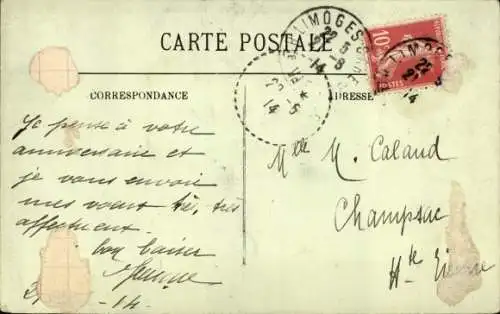 CARTE POSTALE
CORRESPONDANCE
ADRESSE
LIMOGES
22 5
14
10
POSTES
LIMOGES
22
14
2 - 5
14
Je pense à votre
anniversaire et
je vous envoie
mes voeux très, très
affectueux.
bon baiser
14
Mlle M. Caland
Champsac
Hte Vienne